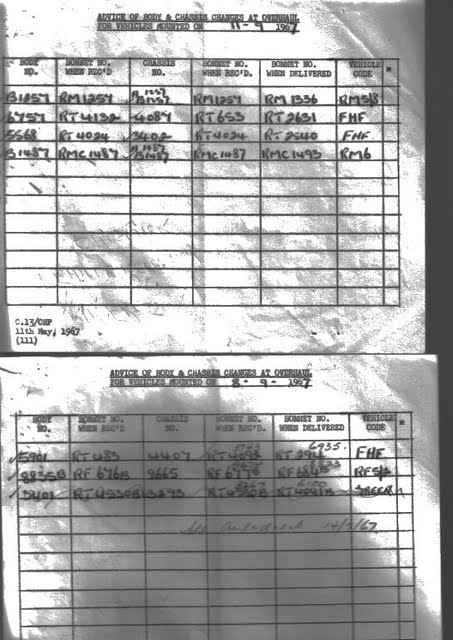 ADVICE OF BODY & CHASSIS CHANGES AT OVERHAUL
FOR VEHICLES MOUNTED ON 11-9 1967
BODY NO. BONNET NO. WHEN REC'D CHASSIS NO. BONNET NO. WHEN REC'D. BONNET NO. WHEN DELIVERED VEHICLE CODE
B1257 RM1257 B1257 RM1257 RM1336 RM5/8
6757 RT4132 4087 RT653 RT2631 FHF
5568 RT4024 3402 RT4024 RT2540 FHF
B1487 RMC1487 B1487 RMC1487 RMC1493 RM6
C.13/CHP
11th May, 1967
(111)
ADVICE OF BODY & CHASSIS CHANGES AT OVERHAUL
FOR VEHICLES MOUNTED ON 8-9- 1967
BODY NO. BONNET NO. WHEN REC'D CHASSIS NO. BONNET NO. WHEN REC'D. BONNET NO. WHEN DELIVERED VEHICLE CODE
6935
5901 RT483 4407 RT4098 FHF
8835B RF676B 9665
5401 3293
14/9/67